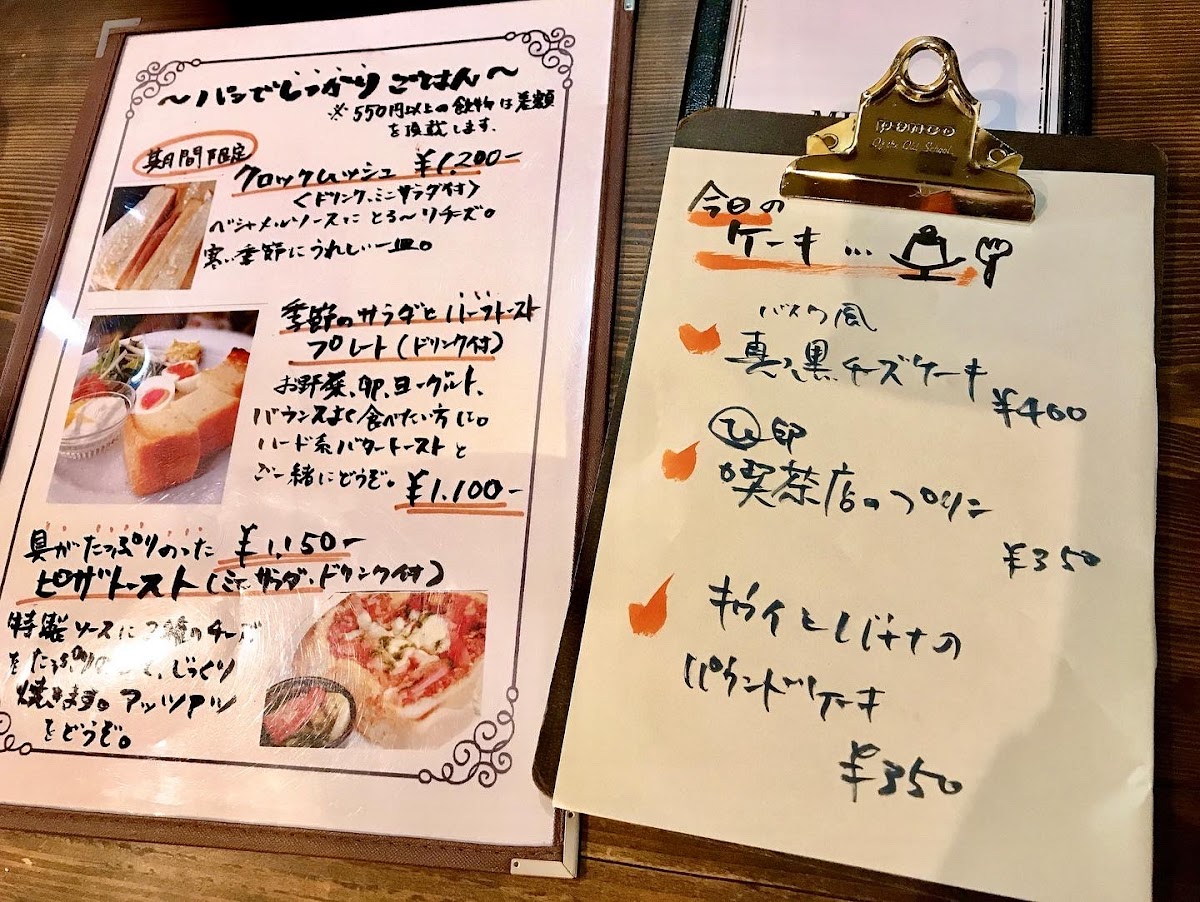 〜パンでしっかりごはん〜
※550円以上の飲物は差額
を頂戴します.
期間限定
クロックムッシュ ¥1,200-
<ドリンク、ミニサラダ付>
ベシャメルソースに とろ〜りチーズ。
寒い季節にうれしい一皿。
季節のサラダとハーフトースト
プレート(ドリンク付)
お野菜、卵、ヨーグルト、
バランスよく食べたい方に。
ハード系バタートーストと
ご一緒にどうぞ。
¥1.100-
具がたっぷりのった ¥1,150-
ピザトースト(ミニサラダ、ドリンク付)
特製ソースに2種のチーズ
をたっぷり じっくり
焼きます。アッツアツ
をどうぞ。
PENCO
Of the Old School
今日の
ケーキ…
バスク風
真っ黒チーズケーキ
¥400
ひ印
喫茶店のプリン
¥350
キウイとバナナの
パウンドケーキ
¥350